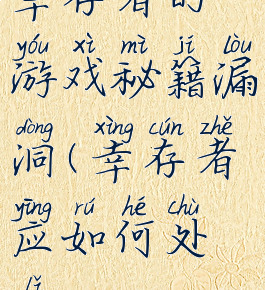 幸存者的
yóu xì mì jí lòu
游戏秘籍漏
dòng xìng cún zhě
洞(幸存者
yīng rú hé chù
应如何处
lǐ